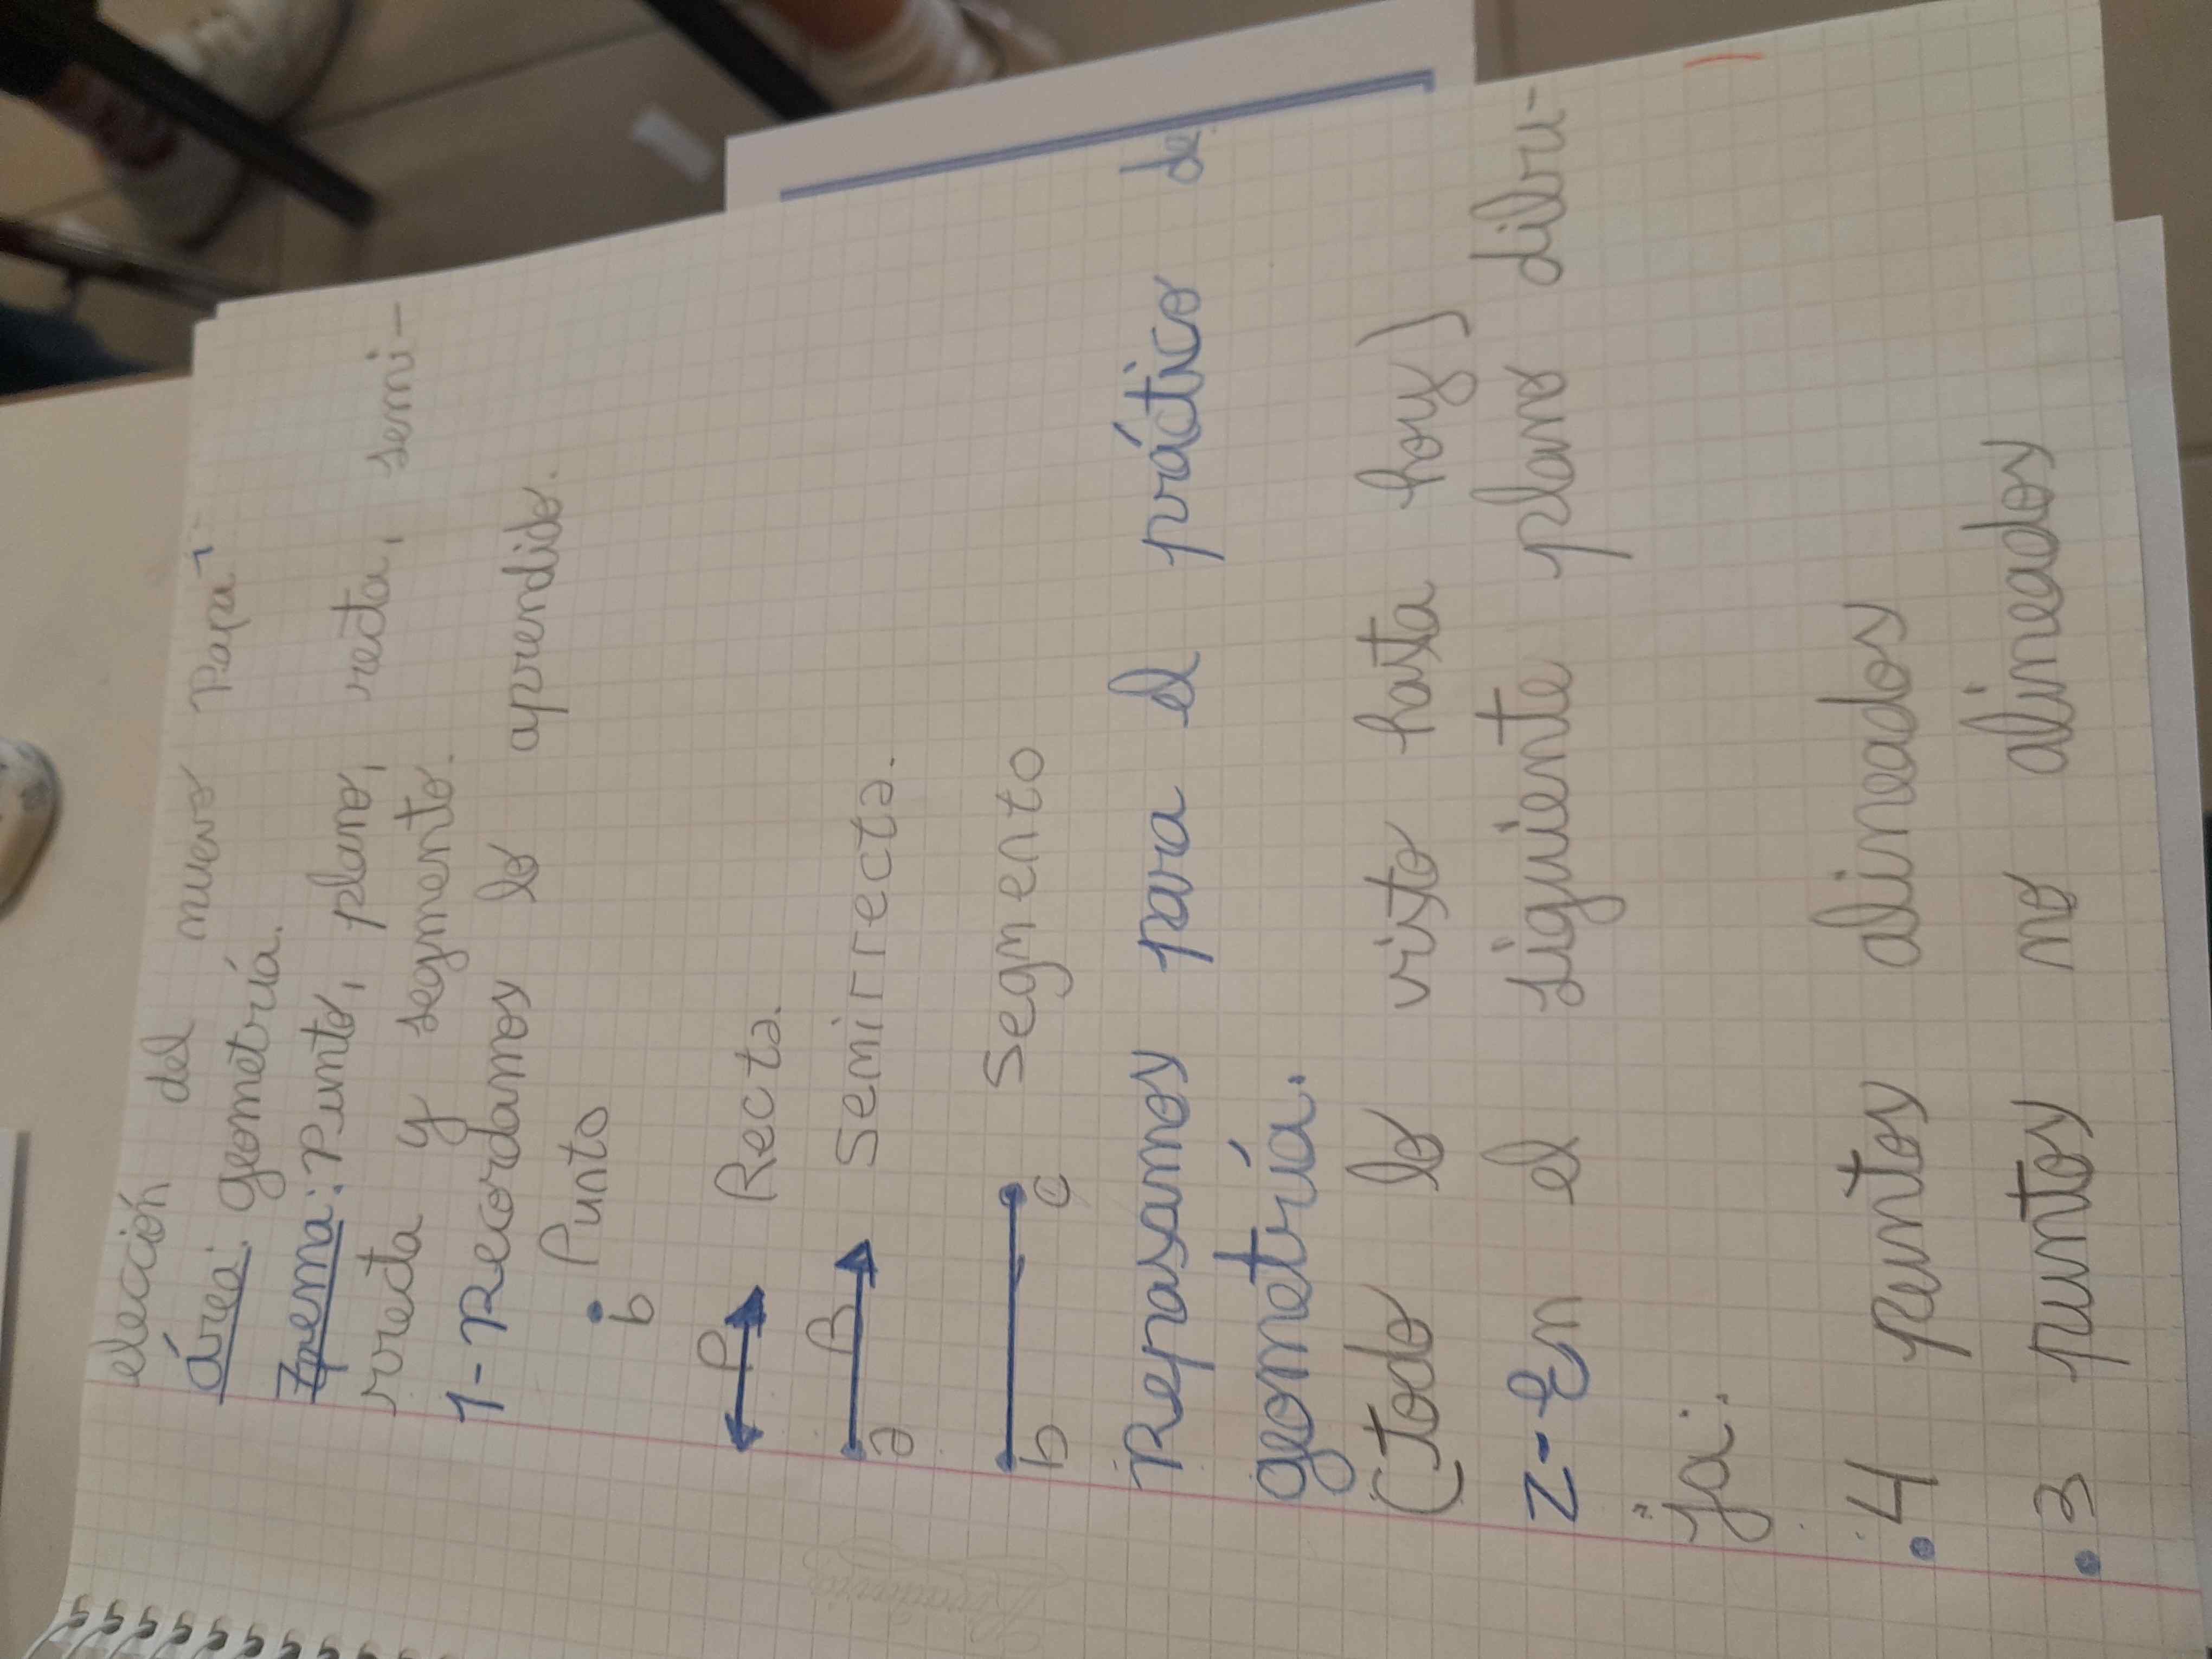 elección del nuevo Papa
área: geometría.
Tema: Punto, plano, recta, semi-
rrecta y segmento.
1- Recordamos lo aprendido.
Punto
b
P
Recta.
B
Semirrecta.
a
Segmento
b c
Repasamos para el práctico de
geometría.
(todo lo visto hasta hoy)
2- En el siguiente plano dibu-
"ja:
• 4 puntos alineados
• 3 puntos no alineados